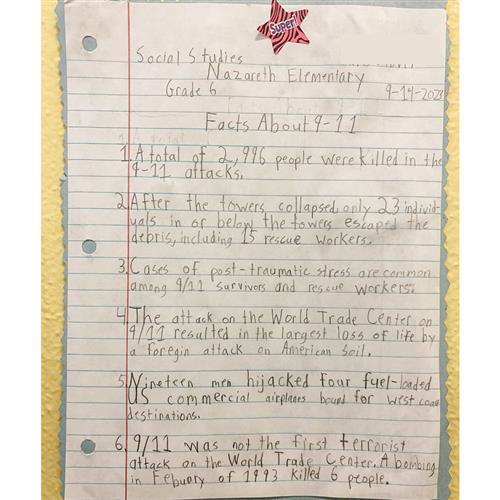 Super!
Social Studies
Nazareth Elementary
Grade 6 9-14-2023
Facts About 9-11
1. A total of 2,996 people were killed in the
9-11 attacks.
2. After the towers collapsed, only 23 individ-
uals in or below the towers escaped the
debris, including 15 rescue workers.
3. Cases of post-traumatic stress are common
among 9/11 survivors and rescue workers.
4. The attack on the World Trade Center on
9/11 resulted in the largest loss of life by
a foregin attack on American soil.
5. Nineteen men hijacked four fuel-loaded
US commercial airplanes bound for west coast
destinations.
6. 9/11 was not the first terrorist
attack on the World Trade Center. A bombing
in Febuary of 1993 killed 6 people.